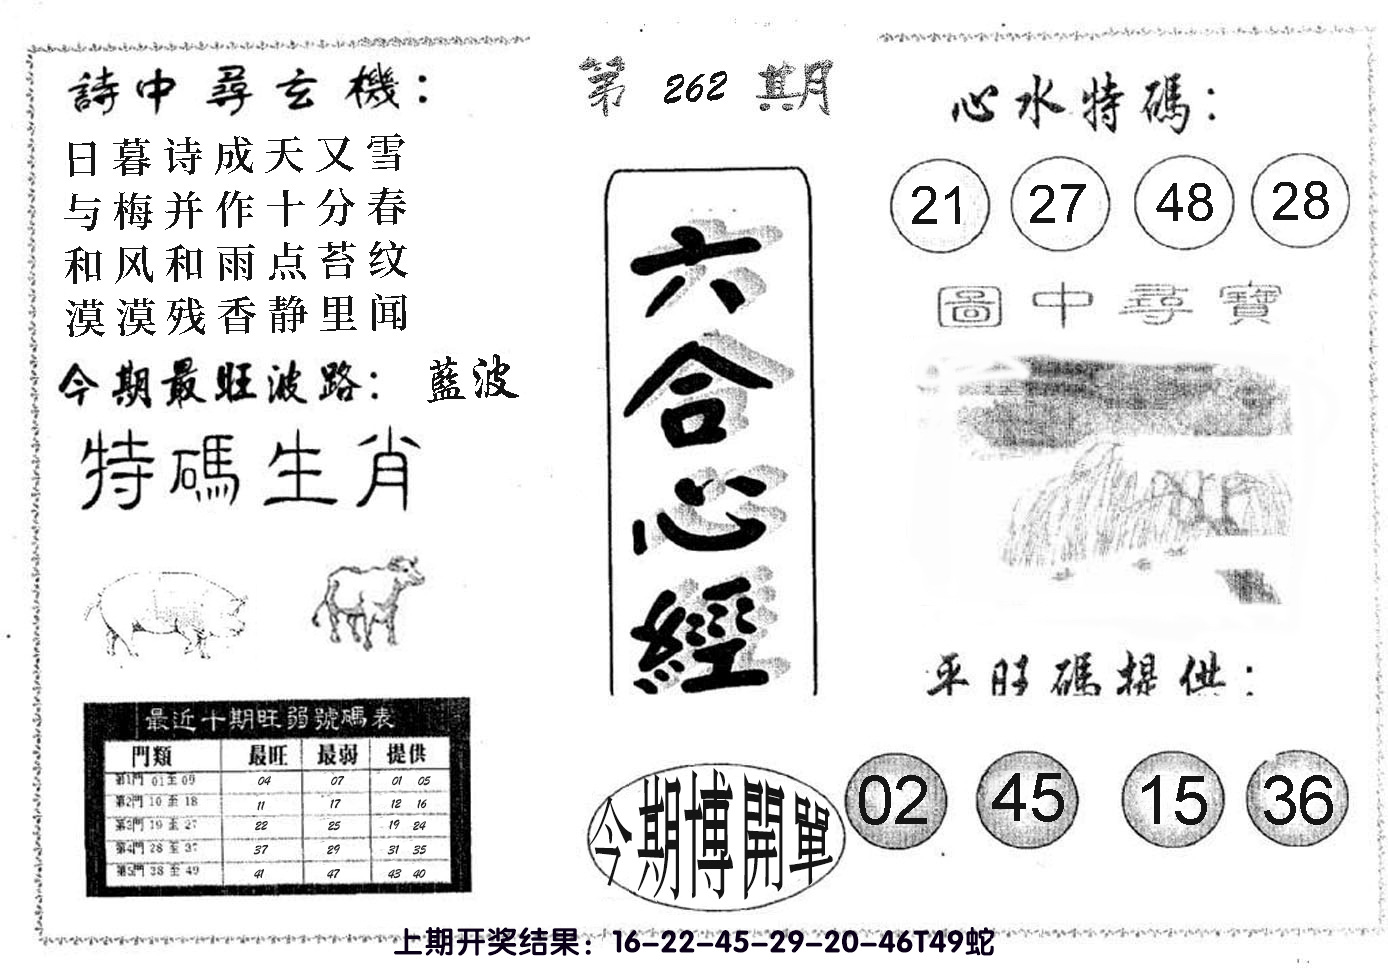 詩中尋玄機：
日暮诗成天又雪
与梅并作十分春
和风和雨点苔纹
漠漠残香静里闻
今期最旺波路： 藍波
特碼生肖
最近十期旺弱號碼表
門類 最旺 最弱 提供
第1門 01至09 04 07 01 05
第2門 10至18 11 17 12 16
第3門 19至27 22 25 19 24
第4門 28至37 37 29 31 35
第5門 38至49 41 47 43 40
第262期
六合心經
今期博開單
心水特碼：
21 27 48 28
圖中尋寶
平旺碼提供：
02 45 15 36
上期开奖结果：16-22-45-29-20-46T49蛇